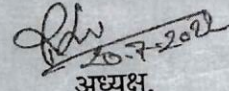 20-7-2022
अध्यक्ष,